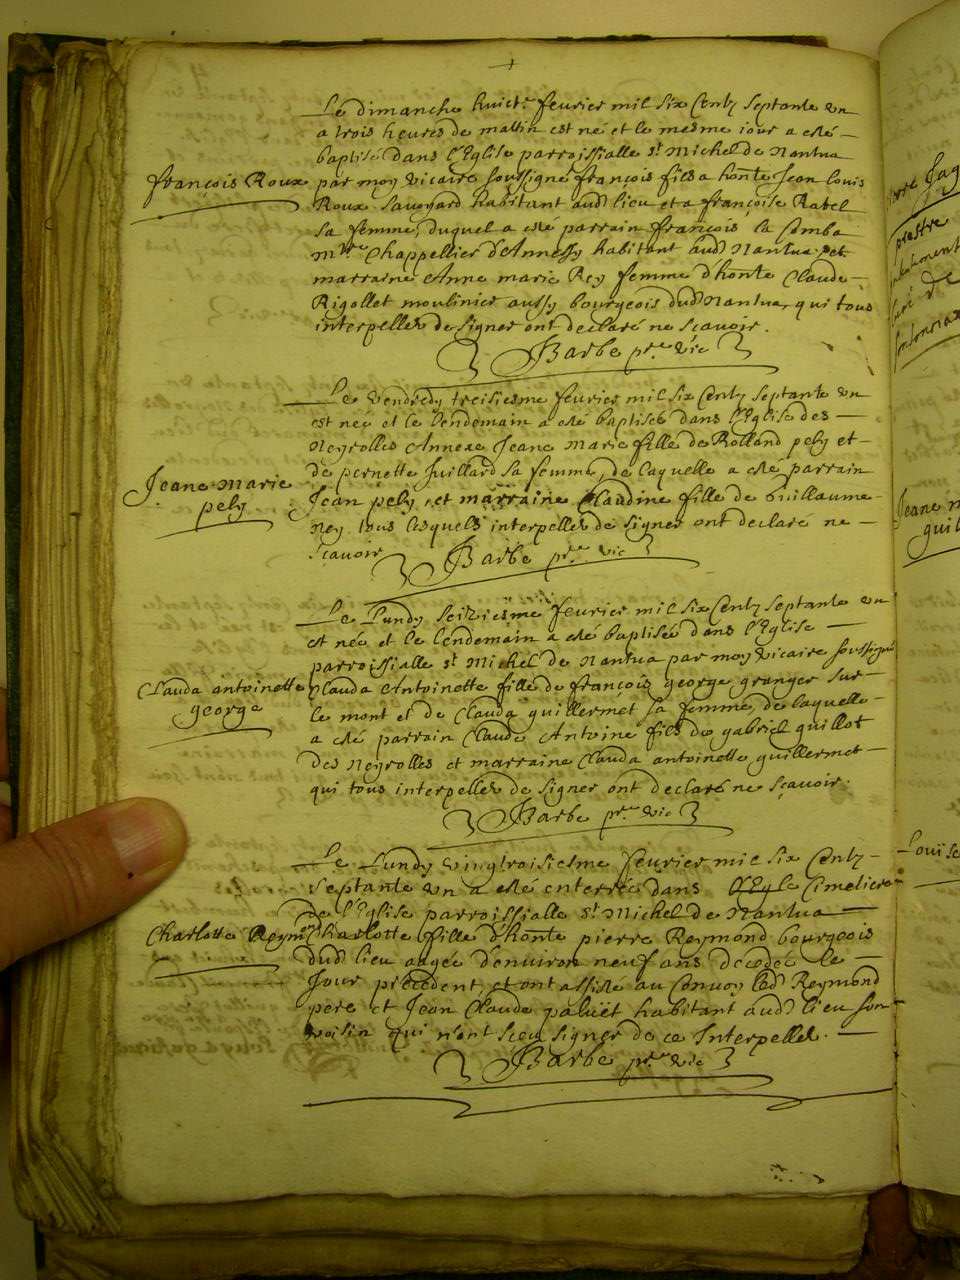 Le dimanche huict.e feurier mil six Centz septante vn
a trois heures de mattin est né et le mesme iour a esté
baptisé dans l'Eglise parroissialle st Michel de Nantua
françois Roux
par moy vicaire soussigné françois fils a honte Jean Louis
Roux Sauoyard habitant aud lieu et a françoise Ratel
sa femme, duquel a esté parrain françois la Comba
Mtre Chappellier d'Annessy habitant aud Nantua et
marraine Anne marie Rey femme d'honte Claude
Rigollet moulinier aussy bourgeois dud Nantua, qui tous
interpellez de signer ont declaré ne sçauoir.
Barbe pre. vic
Le vendredy treisiesme feurier mil six Centz septante vn
est née et le lendemain a esté baptisée dans l'Eglise des
Neyrolles Annexe Jeane Marie fille de Rolland pely et
Jeane Marie
pely
de pernette Juillard sa femme, de laquelle a esté parrain
Jean pely, et marraine Claudine fille de Guillaume
Rey tous lesquels interpellez de signer ont declaré ne
sçauoir
Barbe pre. vic
Le Lundy seiziesme feurier mil six Centz septante vn
est née et le lendemain a esté baptisée dans l'Eglise
parroissialle st Michel de Nantua par moy vicaire soussigné
Clauda antoinette
george
Clauda Antoinette fille de françois george granger sur
le mont et de Clauda guillermet sa femme, de laquelle
a esté parrain Claude Antoine fils de gabriel guillot
des Neyrolles et marraine Clauda antoinette guillermet
qui tous interpellez de signer ont declaré ne sçauoir.
Barbe pre. vic
Le Lundy vingtroisiesme feurier mil six Centz
septante vn a esté enterrée dans le Cimetiere
de l'Eglise parroissialle st Michel de Nantua
Charlotte Reymond
Charlotte fille d'honte pierre Reymond bourgeois
dud lieu aagée d'enuiron neuf ans decedée le
Jour precedent, et ont assisté au Conuoy led Reymond
pere et Jean Claude paluët habitant aud lieu son
voisin qui n'ont sceu signer de ce Interpellez.
Barbe pre. vic
prestre
Jeane
guil
Louise